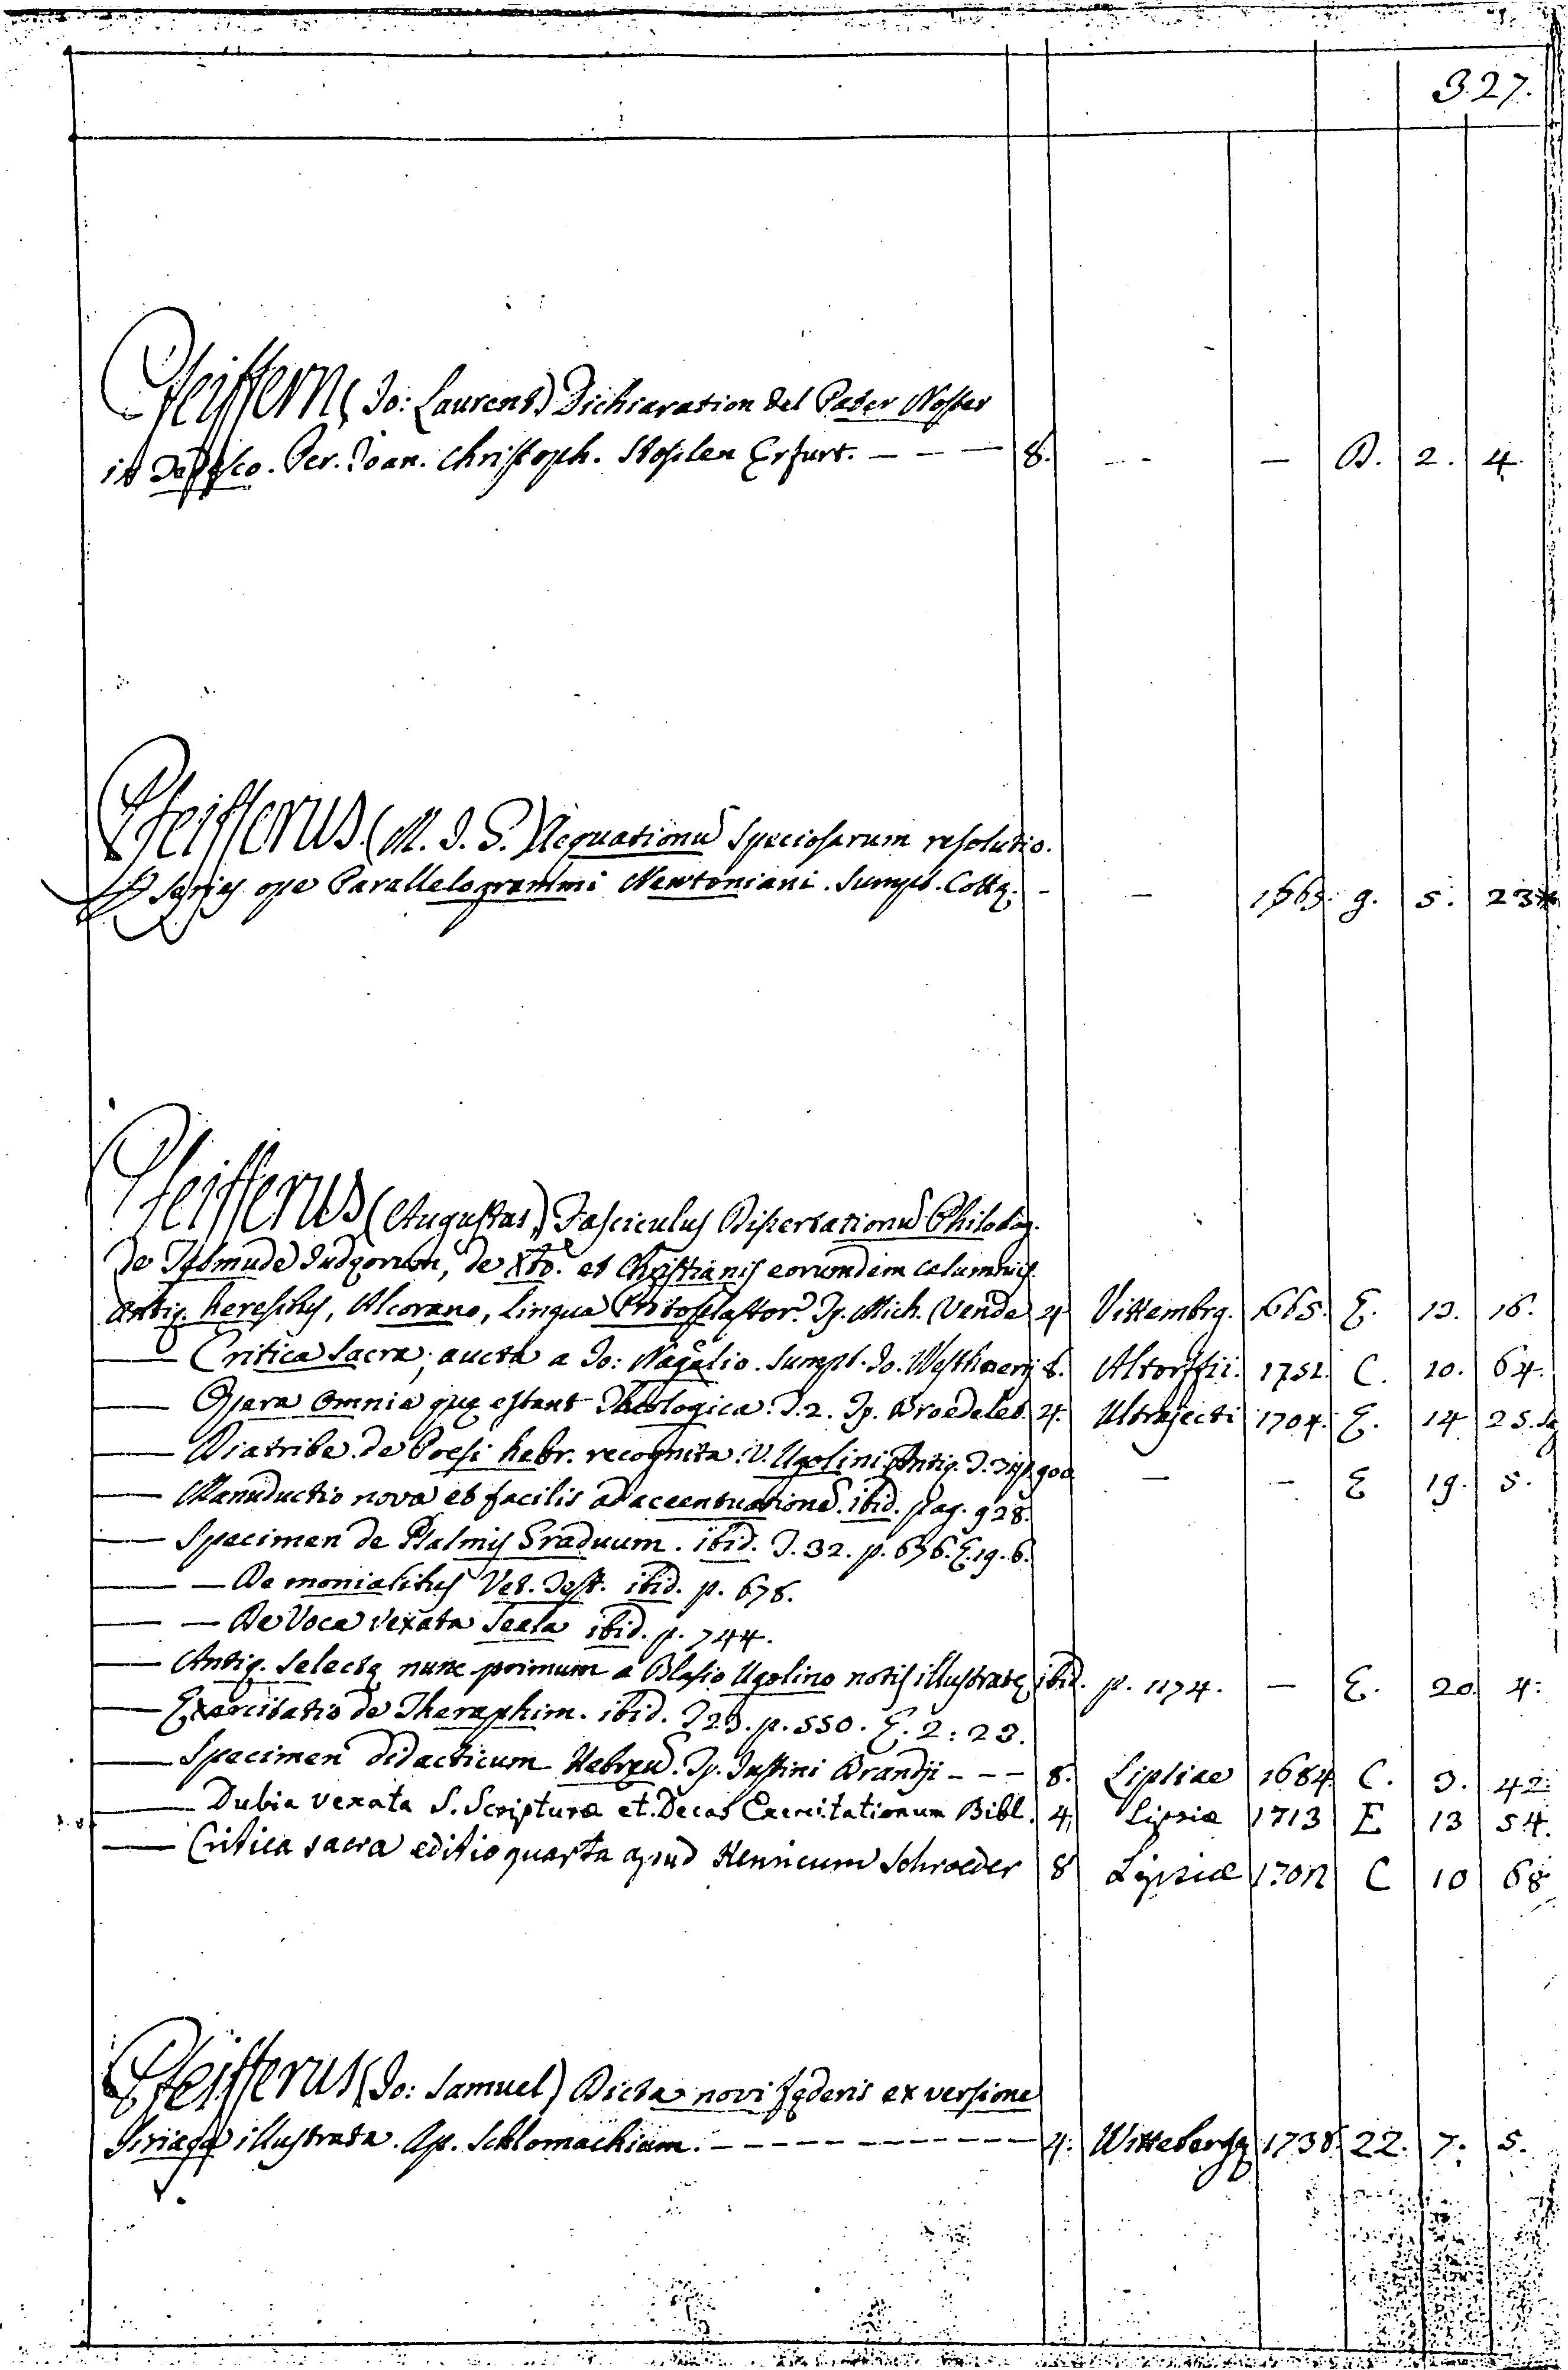 327.
Pfeiffern (Jo: Laurent) Dichiaration del Pater Noster
in Tedesco. Per. Joan. Christoph. Stoslen Erfurt. — — — 8. - - — B. 2. 4.
Pfeifferus. (M. J. G.) Aequationũ Speciosarum resolutio.
series ope Parallelogrammi Newtoniani. Sumpt. Cottę. - — g. 5. 23
Pfeifferus (Augustus) Fasciculus Dissertationũ Philolog.
de Talmude Judęorum, de Xto. et Christianis eorumdem calumniis.
Antiq. heresibus, Alcorano, Lingua Protoplastor. Ty. Mich. Wende 4 Vittembrg. 1665. E. 13. 16.
— Critica Sacra, aucta a Jo: Nagelio. Sumpt. Jo. Westhneri 8. Altorffii. 1751. C. 10. 64.
— Opera Omnia quę extant Theologica. T. 2. Ty. Broedelet. 4. Ultrajecti 1704. E. 14 25.
— Diatribe de Poesi hebr. recognita. V. Ugolini Antiq. T. 31. p. 900 — - E 19. 5.
— Manuductio nova et facilis ad accentuationẽ. ibid. pag. 928.
— Specimen de Psalmis Graduum. ibid. T. 32. p. 676. E. 19. 6.
— — De monialibus Vet. Test. ibid. p. 678.
— — De Voce vexata Seela ibid. p. 744.
— Antiq. Selectę nunc primum a Blasio Ugolino notis illustratę ibid. p. 1174. — E. 20. 4.
— Exercitatio de Theraphim. ibid. T 23. p. 550. E. 2: 23.
— Specimen didacticum Hebręũ. Ty. Justini Brandji - - - 8. Lipsiae 1684. C. 3. 42.
— Dubia vexata S. Scripturæ et Decas Exercitationum Bibl. 4. Lipsiæ 1713 E 13 54.
— Critica sacra editio quarta apud Henricum Schroeder 8 Lipsiæ C 10 68
Pfeifferus (Jo: Samuel) Dicta novi fęderis ex versione
Siriaca illustrata. Ap. Schlomachium. - - - - - - - - - - 4. Wittebergę 1738. 22. 7. 5.